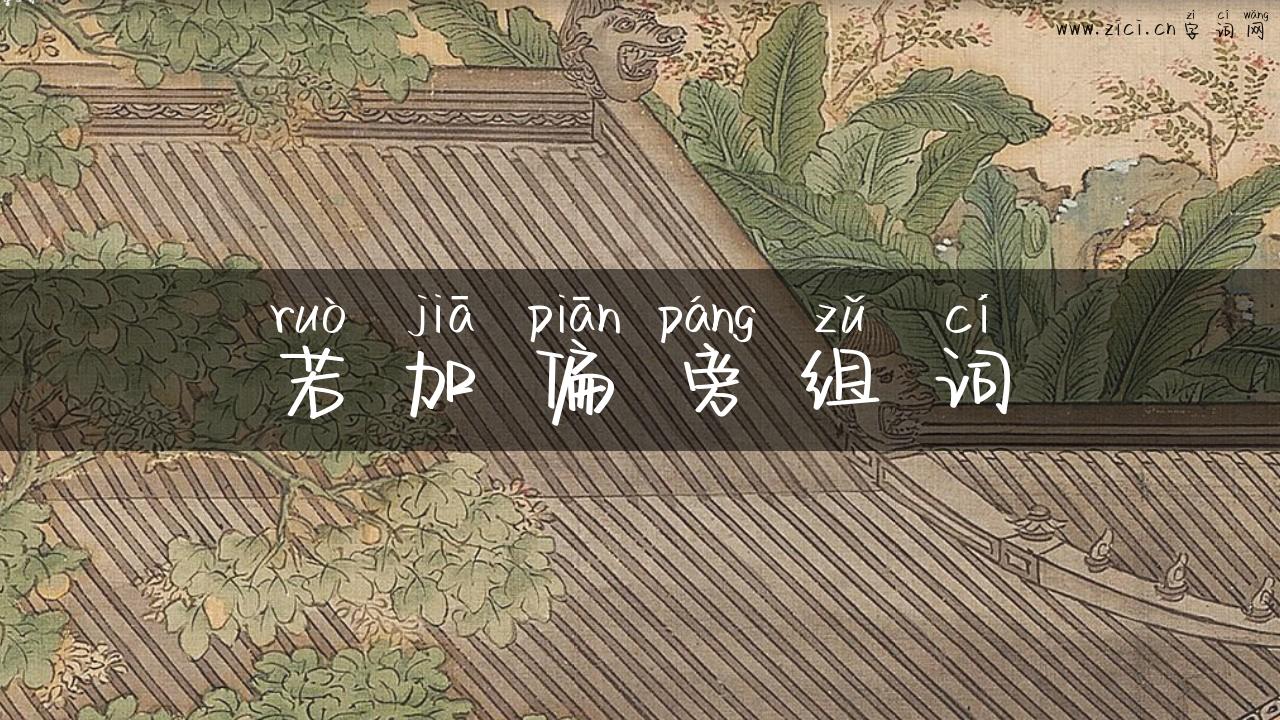 zì cí wǎng
www.zici.cn 字词网
ruò jiā piān páng zǔ cí
若加偏旁组词